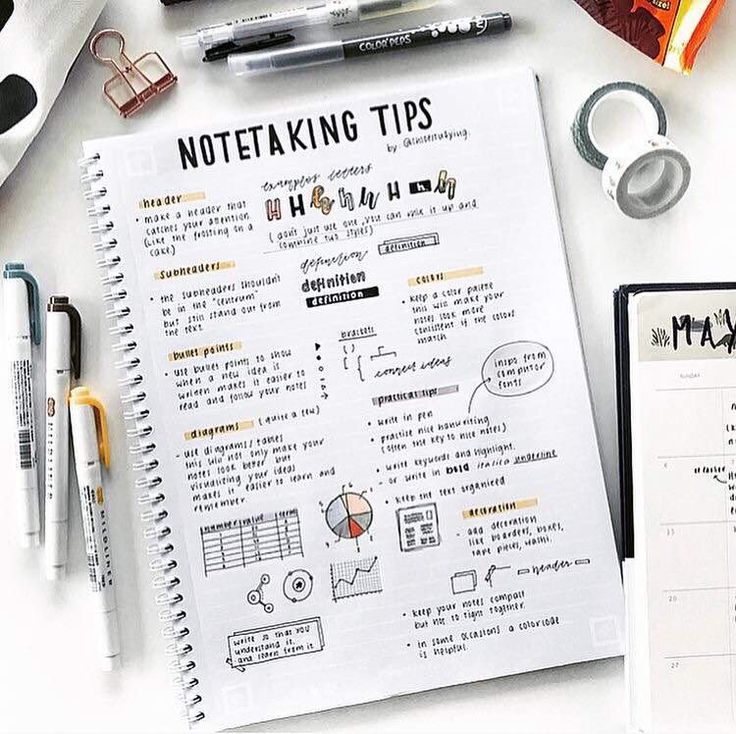 COLOR PEPS
NOTETAKING TIPS
by
header
• make a header that
catches your attention
(like the frosting on a
cake)
examples letters
H H h h H H H h
(don't just use one, you can mix it up and
combine two styles)
Subheaders
• the subheaders shouldn't
be in the "centrum"
but still stand out from
the text.
definition
definition
definition
definition
colors
• keep a color palette
this will make your
notes look more
consistent if the colors
match
bullet points
• use bullet points to show
when a new idea is
written makes it easier to
read and follow your notes
brackets
( )
{ [
connect ideas
inspo from
computor
fonts
practical tips
• write in pen
• practise nice handwriting
(often the key to nice notes)
• write keywords and highlight.
- or write in bold italics underline
• keep the text organized
diagrams (quite a few)
- use diagrams/tables
this will not only make your
notes look better but
visualizing your ideas
makes it easier to learn and
remember.
number value term
decoration
- add decoration
like boarders, boxes,
tape pieces, washi.
header
write so that you
understand it
and learn from it
• keep your notes compact
but not to tight together.
• in some occasions a colorcode
is helpful.
MAY
SUNDAY
6
13
20
27
MILDLINER